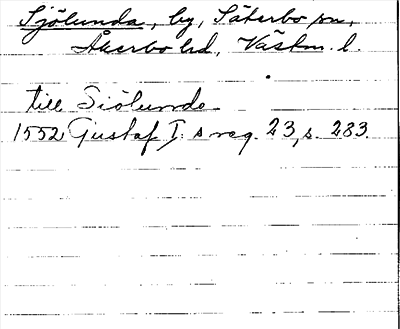 Sjölunda, by, Säterbo sn,
Åkerbo hd, Västm. l.
till Siölunda
1552 Gustaf I:s reg. 23, s. 283.